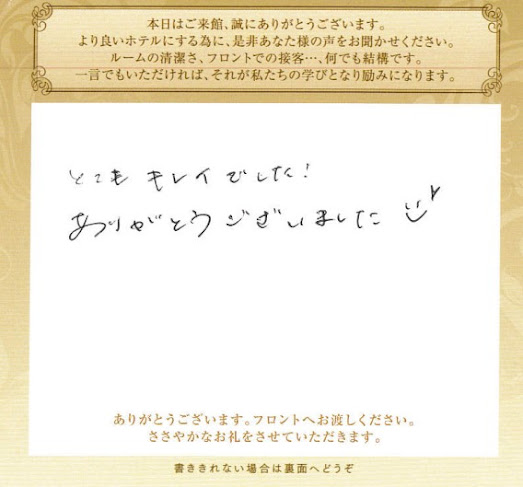 本日はご来館、誠にありがとうございます。
より良いホテルにする為に、是非あなた様の声をお聞かせください。
ルームの清潔さ、フロントでの接客…、何でも結構です。
一言でもいただければ、それが私たちの学びとなり励みになります。
とてもキレイでした!
ありがとうございました
ありがとうございます。フロントへお渡しください。
ささやかなお礼をさせていただきます。
書ききれない場合は裏面へどうぞ